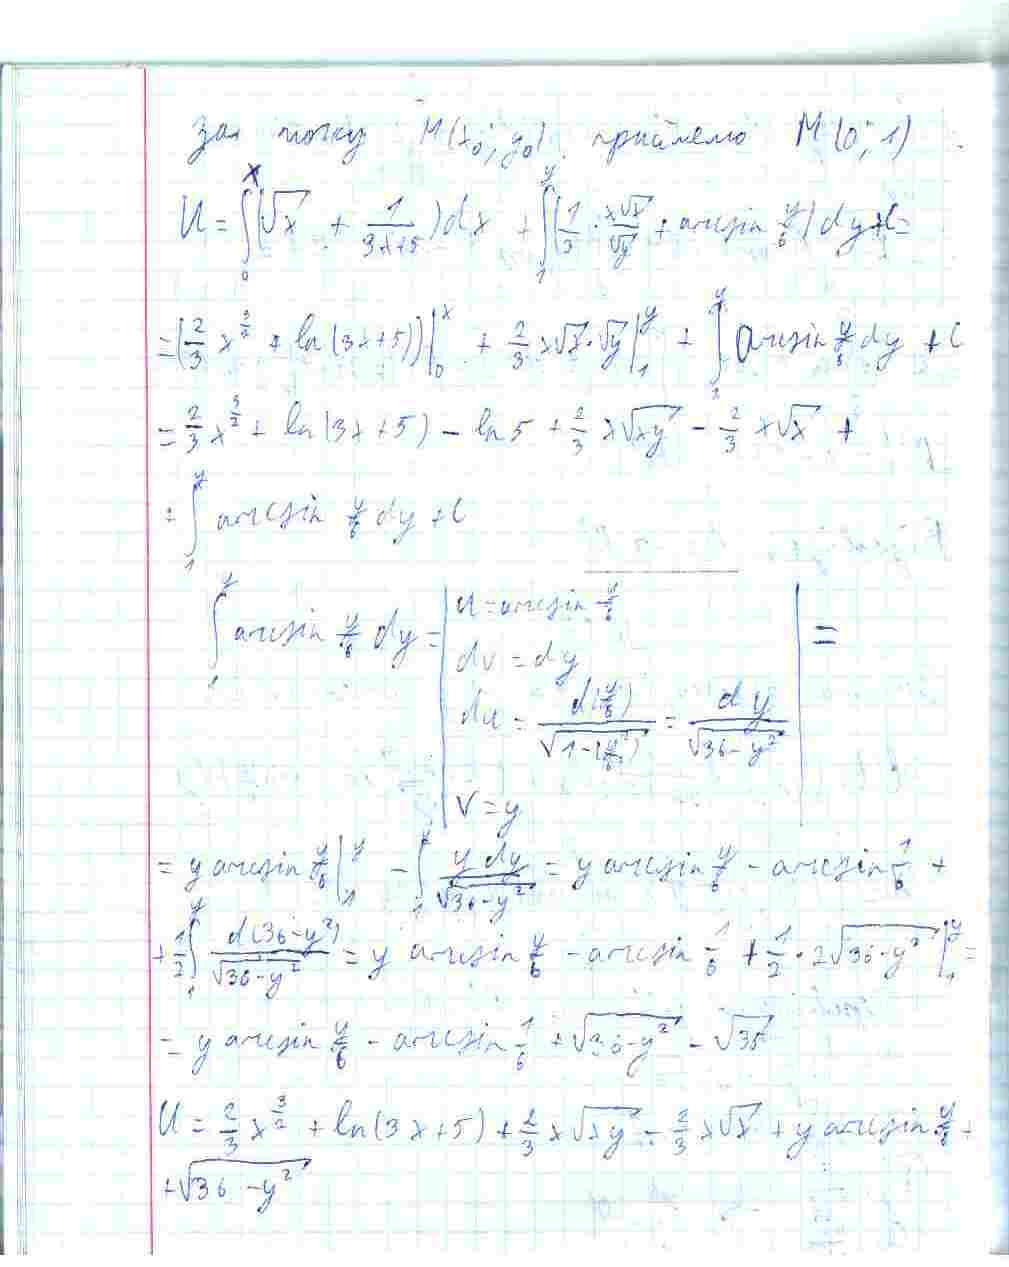 За точку M(x₀; y₀) приймемо M(0; 1).
U = ∫₀ˣ (√x + 1/(3x+5)) dx + ∫₁ʸ (1/3 · x√x/√y + arcsin y/6) dy + C =
= (2/3 x^(3/2) + ln(3x+5))|₀ˣ + 2/3 x√x·√y|₁ʸ + ∫₁ʸ arcsin y/6 dy + C
= 2/3 x^(3/2) + ln(3x+5) − ln5 + 2/3 x√xy − 2/3 x√x +
+ ∫₁ʸ arcsin y/6 dy + C
∫₁ʸ arcsin y/6 dy = | u = arcsin y/6
dv = dy
du = d(y/6)/√(1−(y/6)²) = dy/√(36−y²)
v = y | =
= y arcsin y/6|₁ʸ − ∫₁ʸ y dy/√(36−y²) = y arcsin y/6 − arcsin 1/6 +
+ 1/2 ∫₁ʸ d(36−y²)/√(36−y²) = y arcsin y/6 − arcsin 1/6 + 1/2 · 2√(36−y²)|₁ʸ =
= y arcsin y/6 − arcsin 1/6 + √(36−y²) − √35
U = 2/3 x^(3/2) + ln(3x+5) + 2/3 x√xy − 2/3 x√x + y arcsin y/6 +
+ √(36−y²)